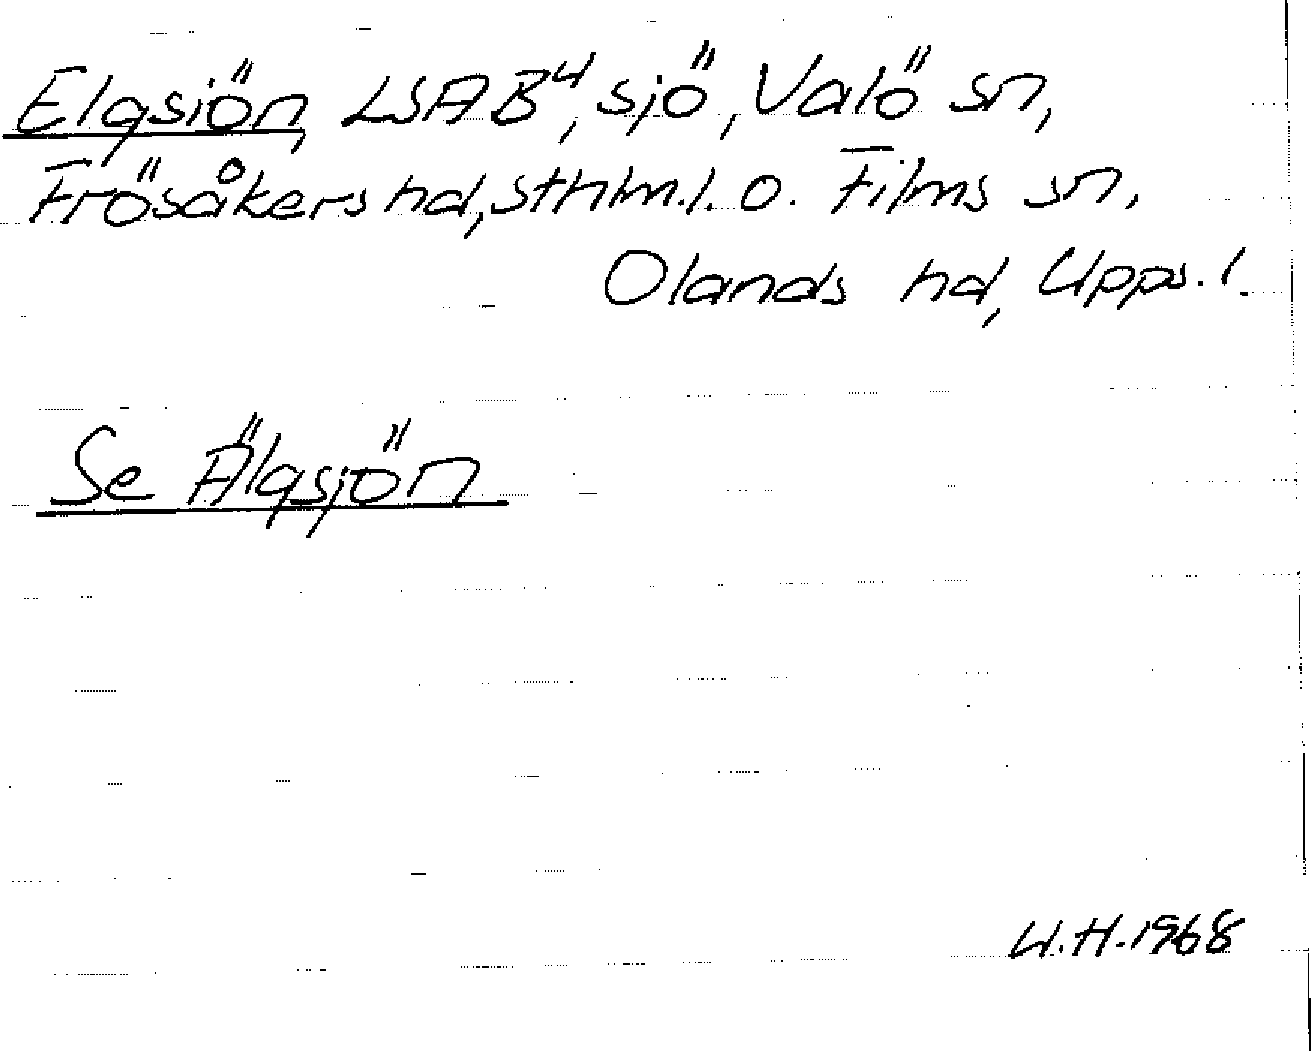 Elgsiön, LSA B4, sjö, Valö sn,
Frösåkers hd, sthlm.l. o. Films sn,
Olands hd, Upps. l.
Se Älgsjön
U.H. 1968